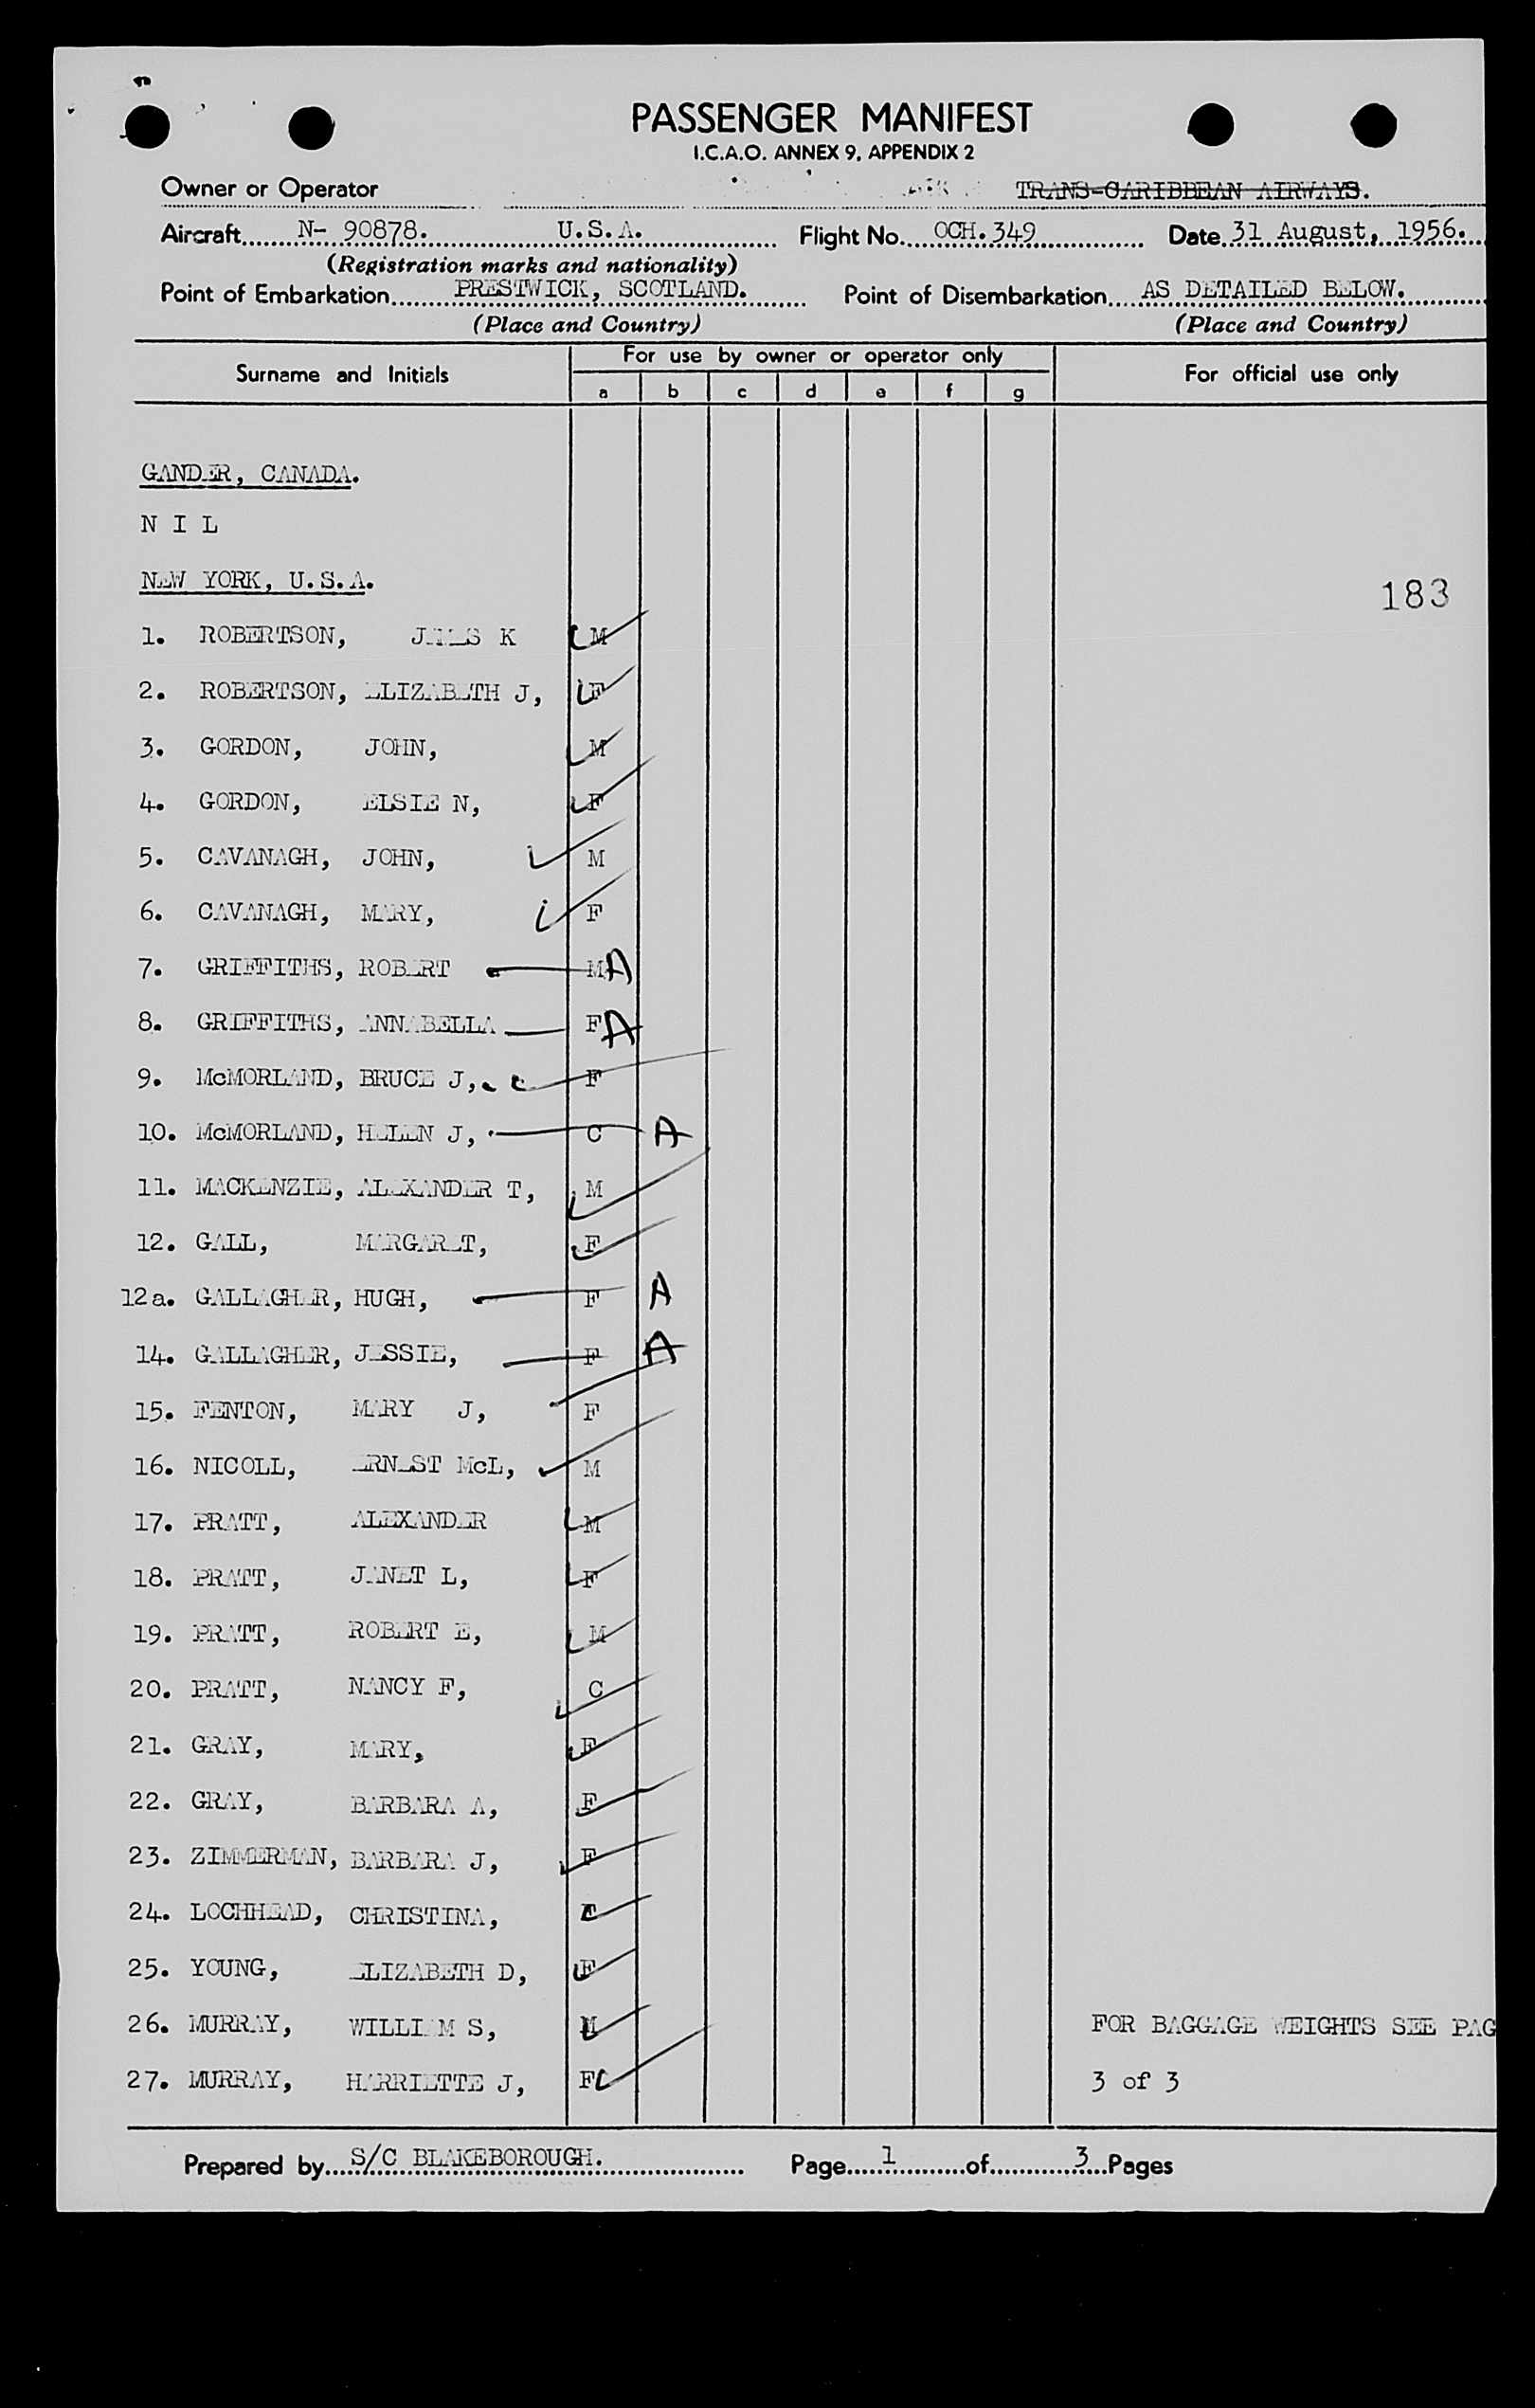 PASSENGER MANIFEST
I.C.A.O. ANNEX 9, APPENDIX 2
Owner or Operator TRANS-CARIBBEAN AIRWAYS.
Aircraft N- 90878. U.S.A. Flight No. OCH.349 Date 31 August, 1956.
(Registration marks and nationality)
Point of Embarkation PRESTWICK, SCOTLAND. Point of Disembarkation AS DETAILED BELOW.
(Place and Country) (Place and Country)
Surname and Initials For use by owner or operator only For official use only
a b c d e f g
GANDER, CANADA.
N I L
NEW YORK, U.S.A.
183
1. ROBERTSON, K M
2. ROBERTSON, ELIZABETH J, F
3. GORDON, JOHN, M
4. GORDON, ELSIE N, F
5. CAVANAGH, JOHN, M
6. CAVANAGH, MARY, F
7. GRIFFITHS, ROBERT M A
8. GRIFFITHS, ANNABELLA F A
9. McMORLAND, BRUCE J, F
10. McMORLAND, HELEN J, C A
11. MACKENZIE, ALEXANDER T, M
12. GALL, MARGARET, F
12a. GALLAGHER, HUGH, F A
14. GALLAGHER, JESSIE, F A
15. FENTON, MARY J, F
16. NICOLL, ERNEST McL, M
17. PRATT, ALEXANDER M
18. PRATT, JANET L, F
19. PRATT, ROBERT E, M
20. PRATT, NANCY F, C
21. GRAY, MARY, F
22. GRAY, BARBARA A, F
23. ZIMMERMAN, BARBARA J, F
24. LOCHHEAD, CHRISTINA,
25. YOUNG, ELIZABETH D, F
26. MURRAY, WILLIAM S, M FOR BAGGAGE WEIGHTS SEE PAG
27. MURRAY, HARRIETTE J, F 3 of 3
Prepared by S/C BLAKEBOROUGH. Page 1 of 3 Pages